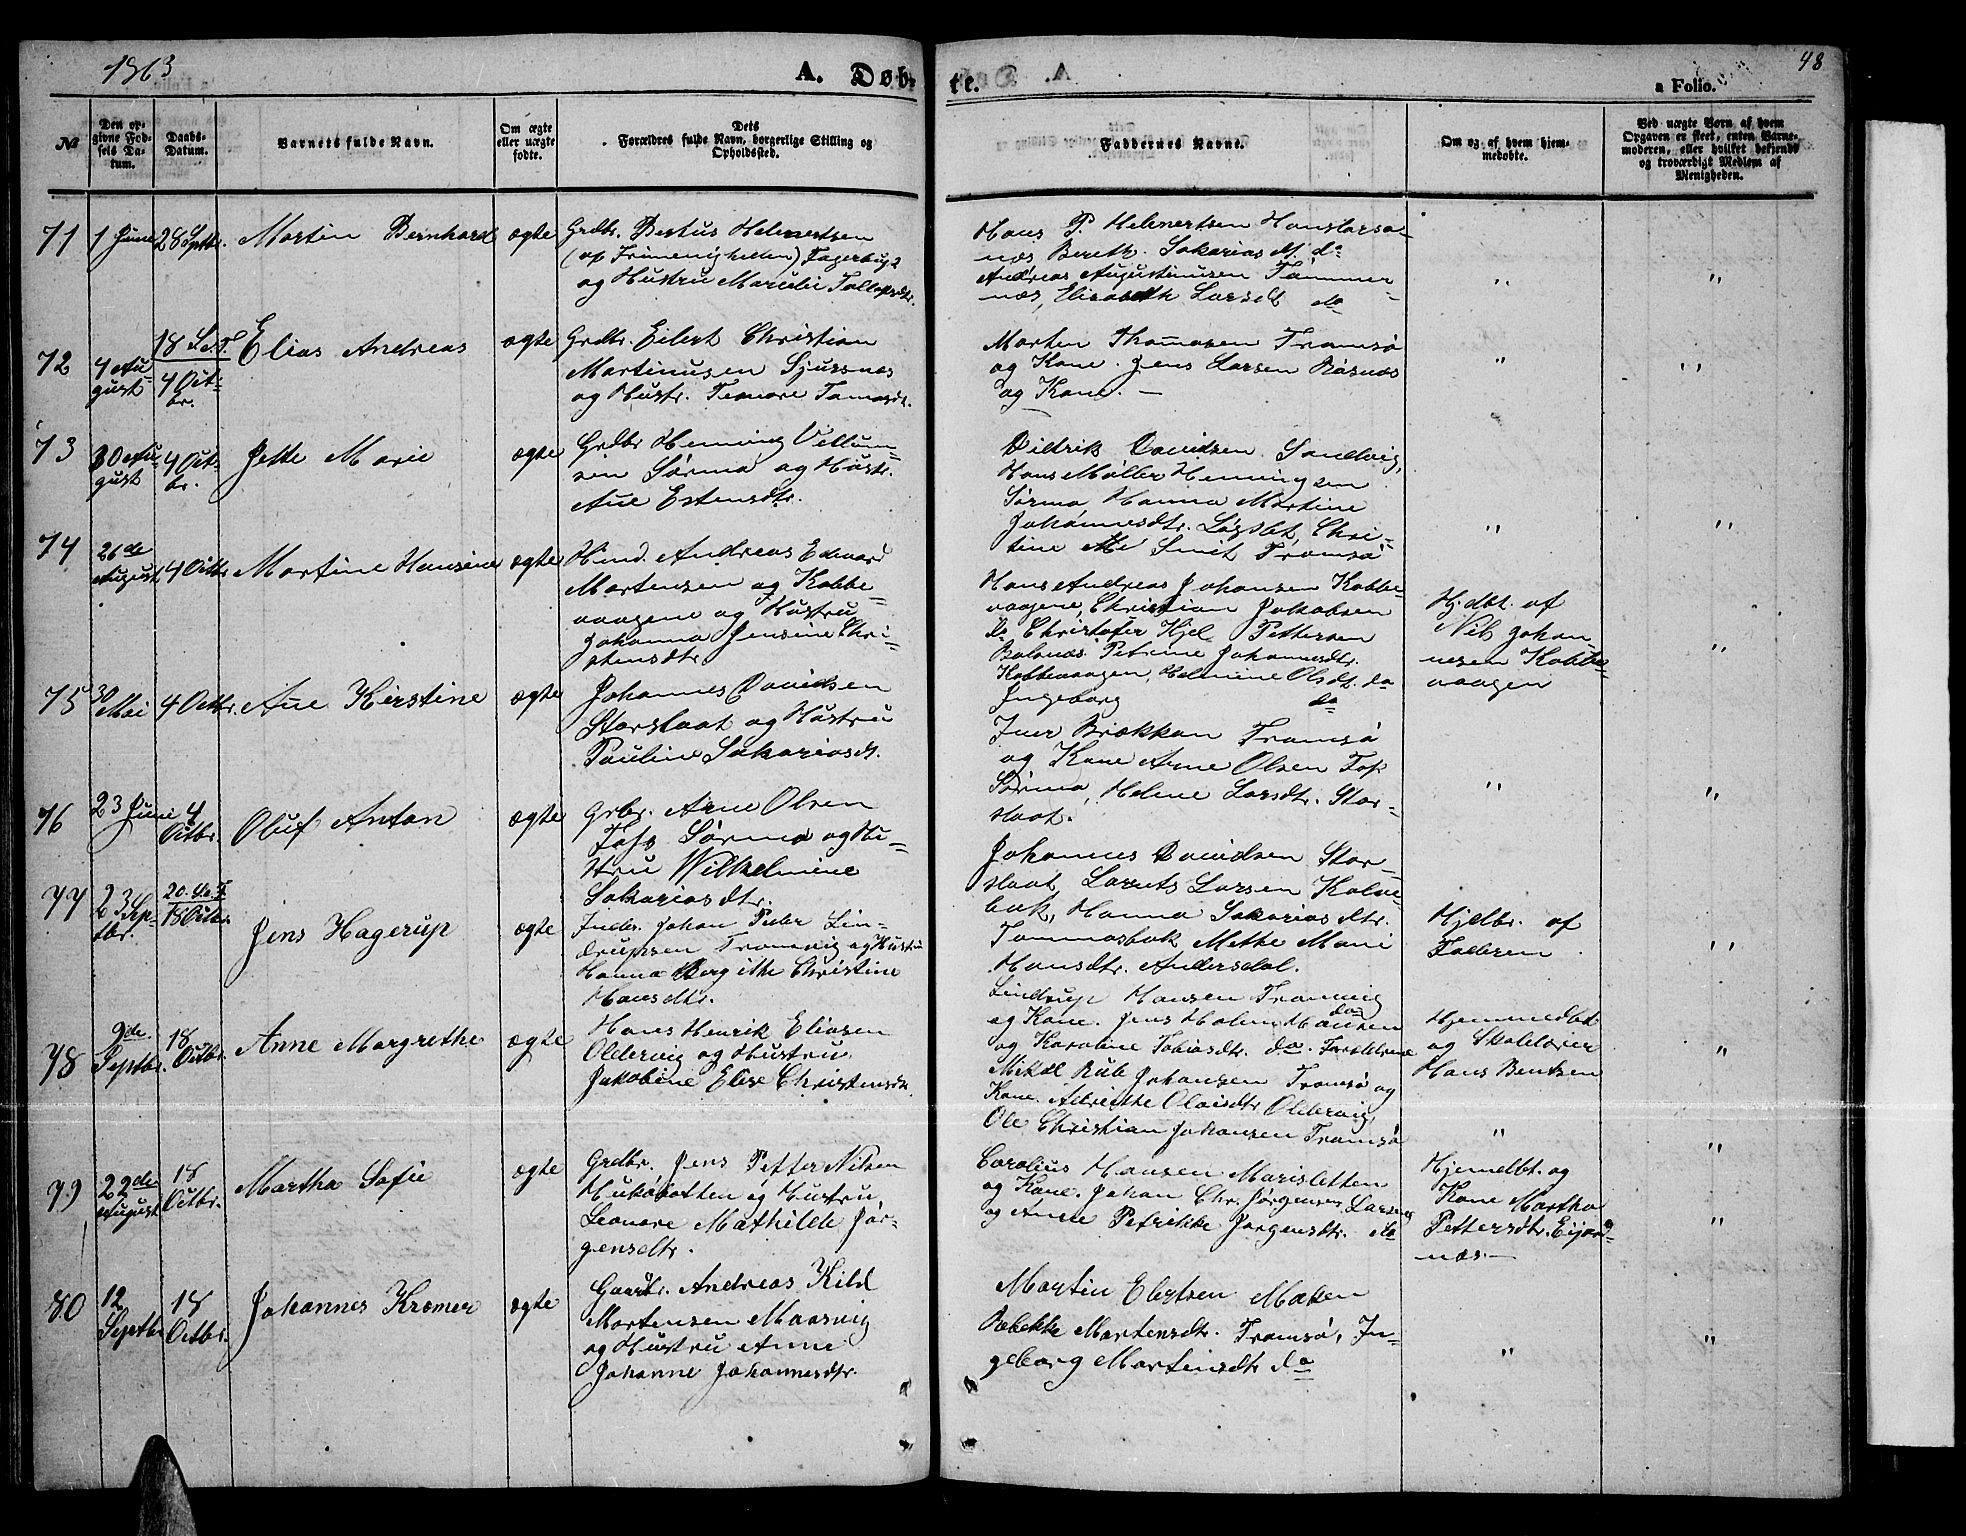 1863
A. Døb-
te.
48
a Folio.
No
Den op-
givne Fød-
sels Da-
tum.
Daabs-
Datum.
Barnets fulde Navn.
Om ægte
eller uægte
fødte.
Dets
Forældres fulde Navn, borgerlige Stilling og
Opholdssted.
Faddernes Navne.
Om og af hvem hjem-
medøbte.
Ved uægte Børn af hvem
Opgaven er skeet, enten Barne-
moderen, eller hvilket bekjendt
og troværdigt Medlem af
Menigheden.
71
1 Juni
28 Septbr.
Martin Bernhard
ægte
Grdbr. Bertus Helmertsen
(af Frimenigheden) Fagerbugt
og Hustru Marielie Tollefsdtr.
Hans P. Helmertsen Hanslarsa-
næs Bereth. Sakarias M. do
Andreas Augustinusen Tømmer-
næs, Elisabeth Larsdt do
"
"
72
4 Au-
gust
18 S.e.T.
4 Oct-
br.
Elias Andreas
ægte
Grdbr. Eilert Christian
Martinusen Sjursnæs
og Hustr. Leonore Tomasdt.
Morten Thomasen Tromsø
og Kone. Jens Larsen Røsnæs
og Kone. —
"
"
73
30 Au-
gust
4 Oct-
br.
Jette Marie
ægte
Grdbr Henning Villum-
sen Sørmo og Hustr.
Ane Estensdtr.
Didrik Davidsen Sandvig,
Hans Møller Henningsen
Sørmo, Hanna Martine
Johannesdtr. Løgslet, Chri-
tine Me Smit Tromsø
"
"
74
26de
August
4 Octbr
Martine Hansine
ægte
Hmd. Andreas Edevard
Martensen og Kobbe-
vaagene og Hustru
Johanna Jensine Chri-
stensdtr
Hans Andreas Johansen Kobbe-
vaagene, Christian Jakobsen
do Christofer Kjel Pettersen
Balsnæs Petrine Johannesdtr.
Kobbevaagen, Helmine Olsdt. do
Ingeborg do
Hjdbt. af
Nils Johan-
nesen Kobbe-
vaagen
"
75
3 Mai
4 Octbr.
Ane Kirstine
ægte
Johannes Davidsen
Storslaat og Hustru
Pauline Sakariasdt.
Iver Brækkan Tromsø
og Kone Arne Olsen Fos
Sørmo, Helene Larsdtr. Stor-
slaat.
"
"
76
23 Juni
4
Octbr.
Oluf Anton
ægte
Grbr. Arne Olsen
Fos Sørmo og Hu-
stru Wilhelmine
Sakariasdtr.
Johannes Davidsen Stor-
slaat, Lorents Larsen Kalve-
bak, Hanna Sakariasdtr.
Tommasbak Methe Mari
Hansdtr. Andersdal.
77
23 Sep-
tbr.
20. S.e.T.
18 Octbr.
Jens Hagerup
ægte
Inder. Johan Peder Lin-
drupsen Tromvig og Hustru
Hanna Bergithe Christine
Hansdtr.
Lindrup Hansen Tromvig
og Kone. Jens Holm Hansen do
og Karoline Tobiasdtr. do. Forældrene
Hjdbr. af
Faderen
"
78
9de
Septbr.
18
Octbr.
Anne Margrethe
ægte
Hans Henrik Eliasen
Oldervig og Hustru
Jakobine Elise Christensdt.
Mikal Rub Johansen Tromsø og
Kone. Albrikke Olaisdtr Oldervig
Ole Christian Johansen Tromsø
Hjemmedbt
og Skolelærer
Hans Bentsen
"
"
"
79
22de
August
18
Octbr.
Martha Sofie
ægte
Grdbr. Jens Petter Nilsen
Hukøbotten og Hustru
Leonore Mathilde Jør-
gensdtr.
Carolius Hansen Marisletten
og Kone. Johan Chr. Jørgensen Larsnes
og Anne Petrikke Jørgensdtr. do
Hjemdbt. og
Kone Martha
Pettersdtr. Eijør-
næs. —
"
80
12
Septbr
18
Octbr.
Johannes Kræmer
ægte
Gaardbr. Andreas Kild
Mortensen Maasvig
og Hustru Anne
Johanne Johannesdtr.
Martin Elertsen Maken
Rebekke Martensdtr. Tromsø, In-
geborg Martensdtr do
"
"